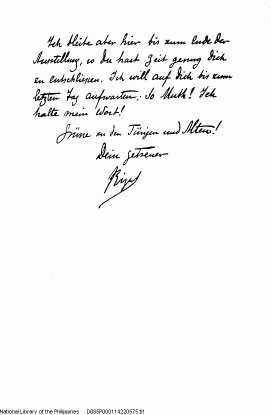 Ich bleibe aber hier bis zum Ende der
Ausstellung, so du hast Zeit genug Dich
zu entschliessen. Ich will auf Dich bis zum
letzten Tag aufwarten. So Muth! Ich
halte mein Wort!
Grüsse an den Jüngen und Alten!
Dein getreuer
Rizal
National Library of the Philippines D035P000114220575.tif